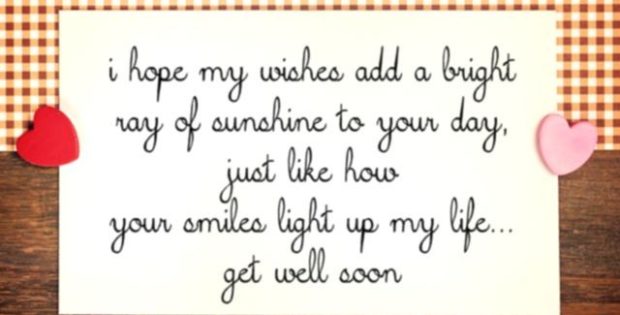 i hope my wishes add a bright
ray of sunshine to your day,
just like how
your smiles light up my life...
get well soon